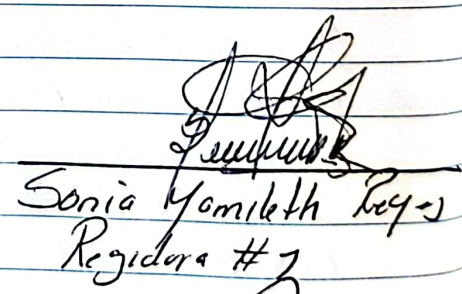 Sonia Yamileth Reyes
Regidora #